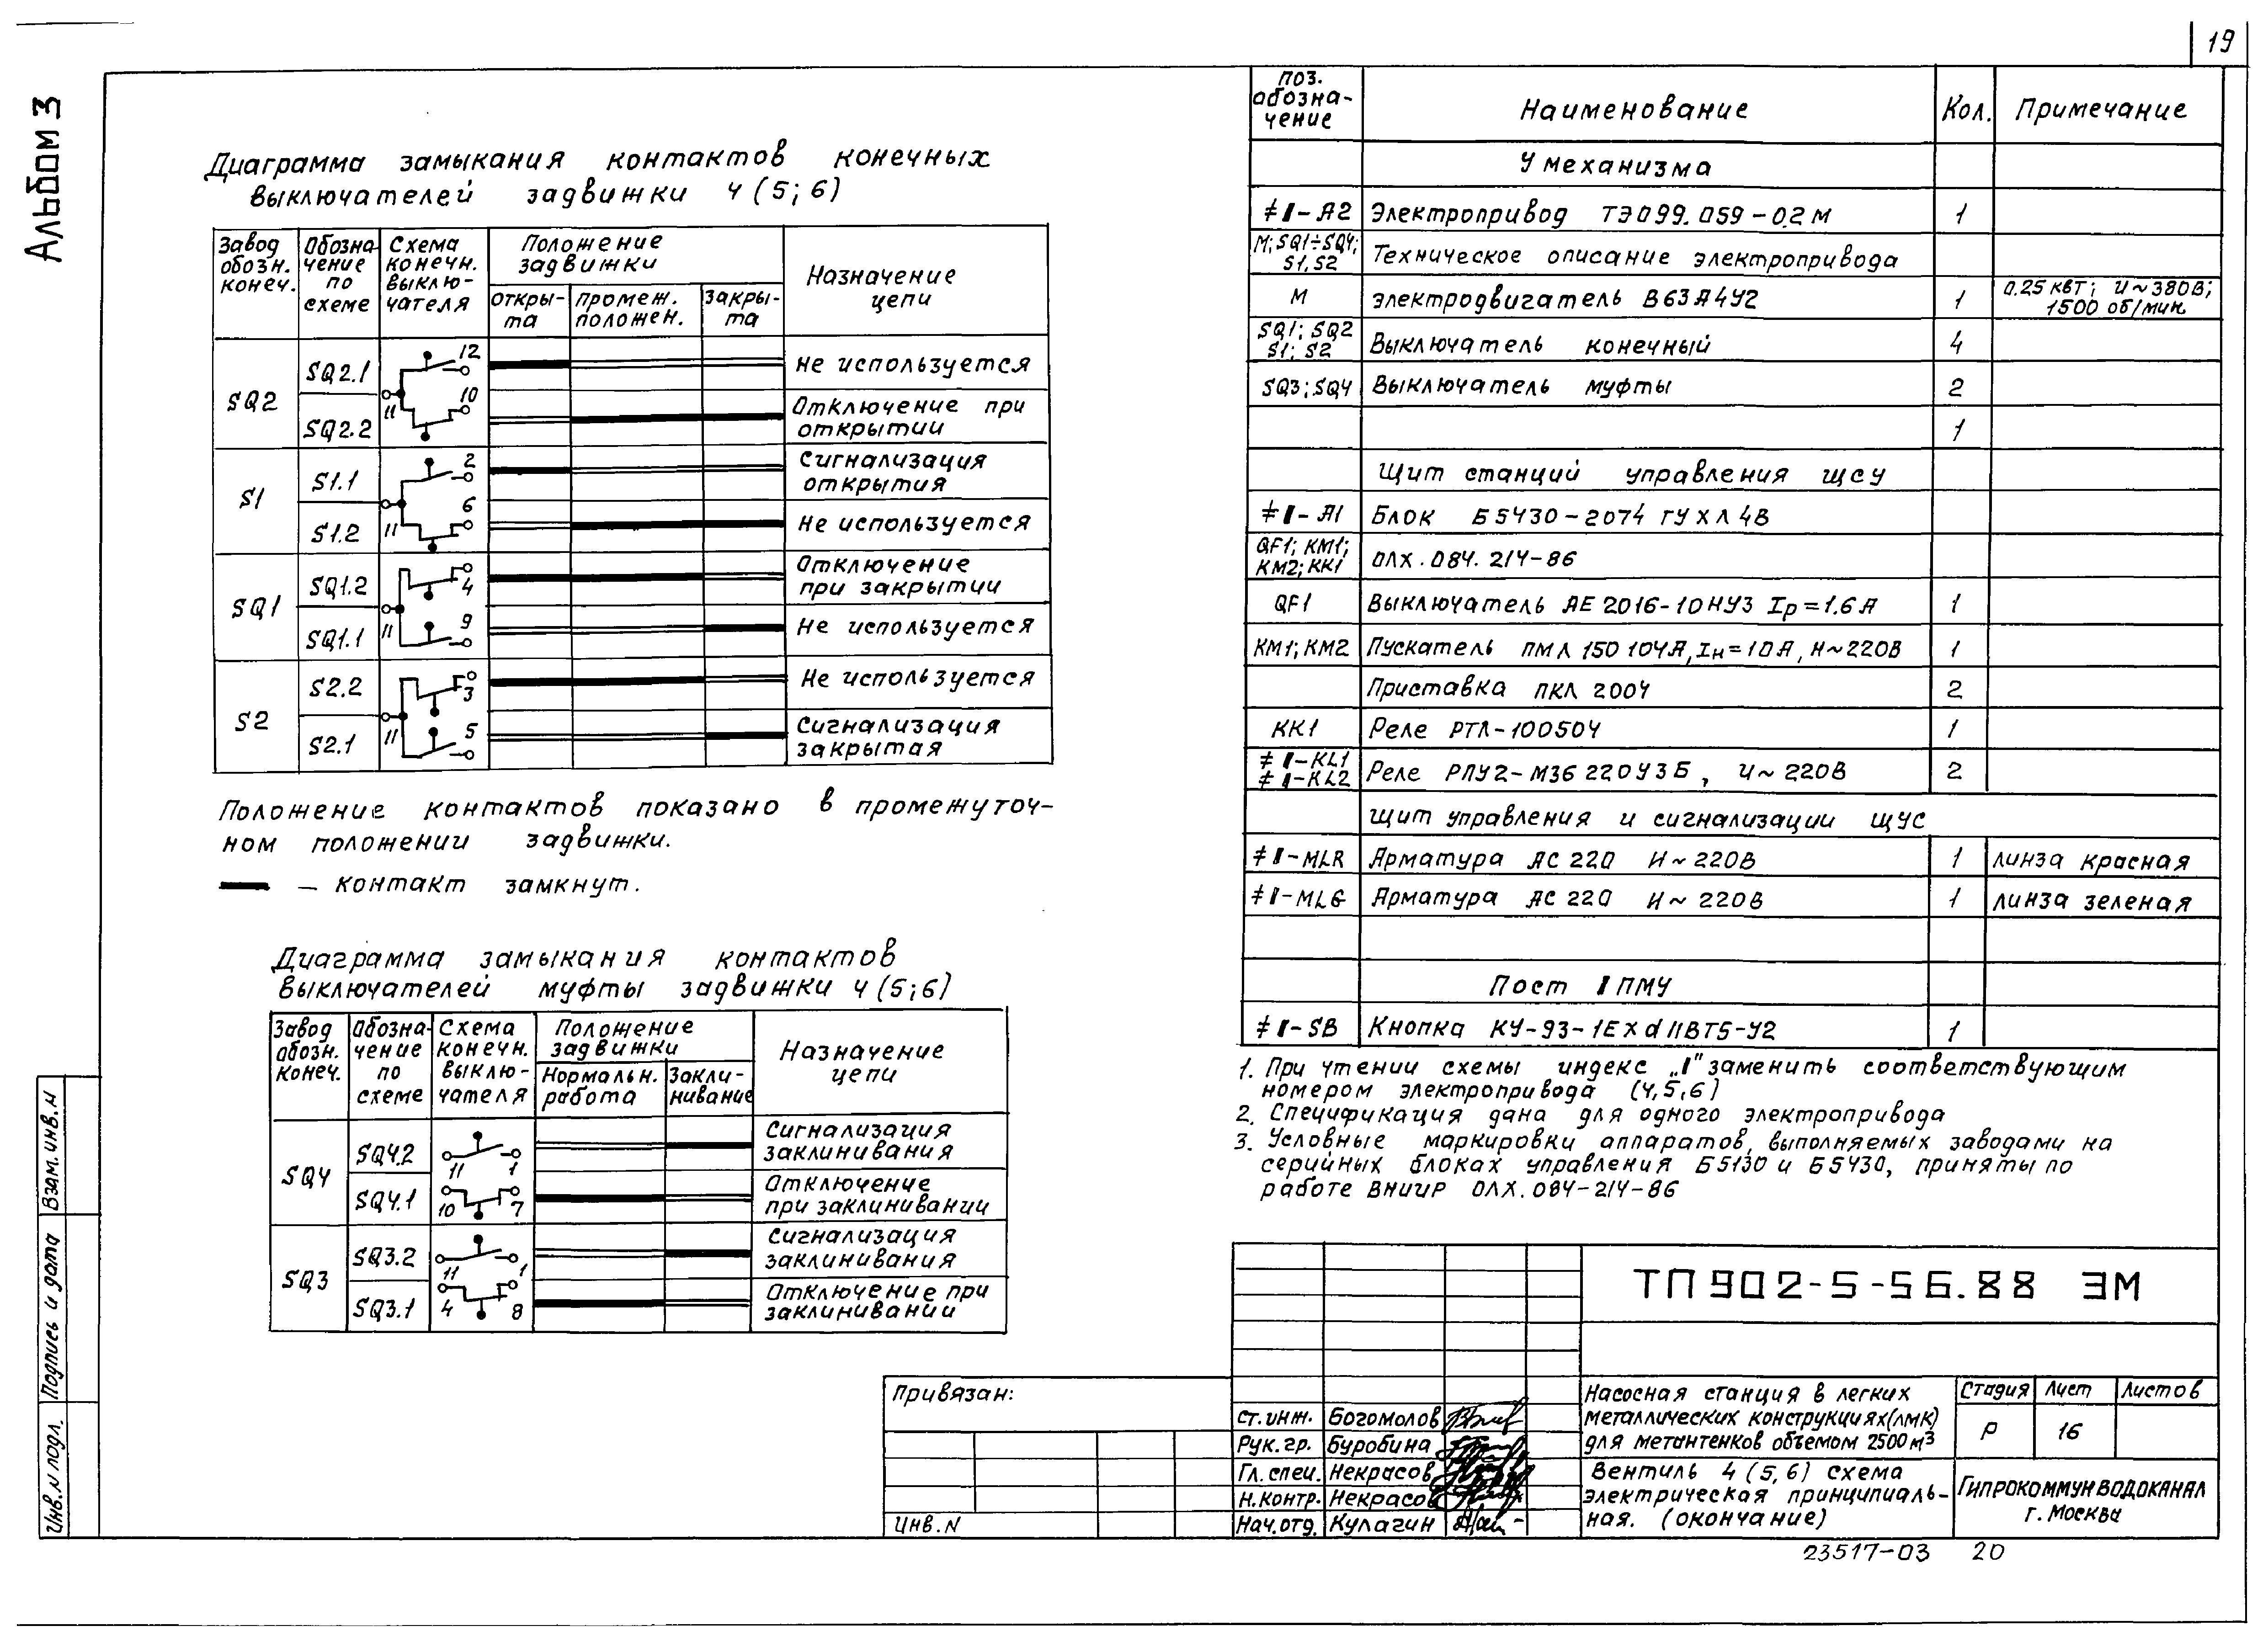 19
Альбом 3
Диаграмма замыкания контактов конечных
выключателей задвижки 4 (5; 6)
Завод обозн. конеч.
Обозна-чение по схеме
Схема конечн. выклю-чателя
Положение задвижки
откры-та
промеж. положен.
закры-та
Назначение цепи
SQ2
SQ2.1
12
Не используется
11
10
SQ2.2
Отключение при открытии
S1
S1.1
2
Сигнализация открытия
11
6
S1.2
Не используется
SQ1
SQ1.2
4
Отключение при закрытии
11
9
SQ1.1
Не используется
S2
S2.2
3
Не используется
11
5
S2.1
Сигнализация закрытая
Положение контактов показано в промежуточ-
ном положении задвижки.
— контакт замкнут.
Диаграмма замыкания контактов
выключателей муфты задвижки 4 (5;6)
Завод обозн. конеч.
Обозна-чение по схеме
Схема конечн. выклю-чателя
Положение задвижки
Нормальн. работа
Закли-нивание
Назначение цепи
SQ4
SQ4.2
11 1
Сигнализация заклинивания
SQ4.1
10 7
Отключение при заклинивании
SQ3
SQ3.2
11 1
Сигнализация заклинивания
SQ3.1
4 8
Отключение при заклинивании
поз. обозна-чение
Наименование
Кол.
Примечание
У механизма
≠I-A2 Электропривод ТЭ099.059-02М 1
M; SQ1÷SQ4; S1, S2 Техническое описание электропривода
M электродвигатель В63А4У2 1 0.25 кВт; U~380В; 1500 об/мин.
SQ1; SQ2 S1; S2 Выключатель конечный 4
SQ3; SQ4 Выключатель муфты 2
1
Щит станций управления ЩСУ
≠I-A1 Блок Б5430-2074 ГУХЛ4В
QF1; KM1; KM2; KK1 ОЛХ.084.214-86
QF1 Выключатель АЕ 2016-10НУ3 Iр=1.6А 1
KM1; KM2 Пускатель ПМЛ 150 104А, Iн=10А, Н~220В 1
Приставка ПКЛ 2004 2
KK1 Реле РТЛ-100504 1
≠I-KL1 ≠I-KL2 Реле РПУ2-М36 220У3Б, U~220В 2
Щит управления и сигнализации ЩУС
≠I-MLR Арматура АС 220 U~220В 1 линза красная
≠I-MLG Арматура АС 220 U~220В 1 линза зеленая
Пост I ПМУ
≠I-SB Кнопка КУ-93-1ЕхdIIВТ5-У2 1
1. При чтении схемы индекс „I" заменить соответствующим
номером электропривода (4,5,6)
2. Спецификация дана для одного электропривода
3. Условные маркировки аппаратов, выполняемых заводами на
серийных блоках управления Б5130 и Б5430, приняты по
работе ВНИИР ОЛХ.084-214-86
ТП 902-5-56.88 ЭМ
Привязан:
Инв. N
Ст. инж. Богомолов
Рук. гр. Буробина
Гл. спец. Некрасов
Н. контр. Некрасов
Нач. отд. Кулагин
Насосная станция в легких
металлических конструкциях (ЛМК)
для метантенков объемом 2500 м³
Стадия Лист Листов
Р 16
Вентиль 4 (5,6) схема
электрическая принципиаль-
ная. (окончание)
ГИПРОКОММУНВОДОКАНАЛ
г. Москва
23517-03 20
Взам. инв. N
Подпись и дата
Инв. N подл.